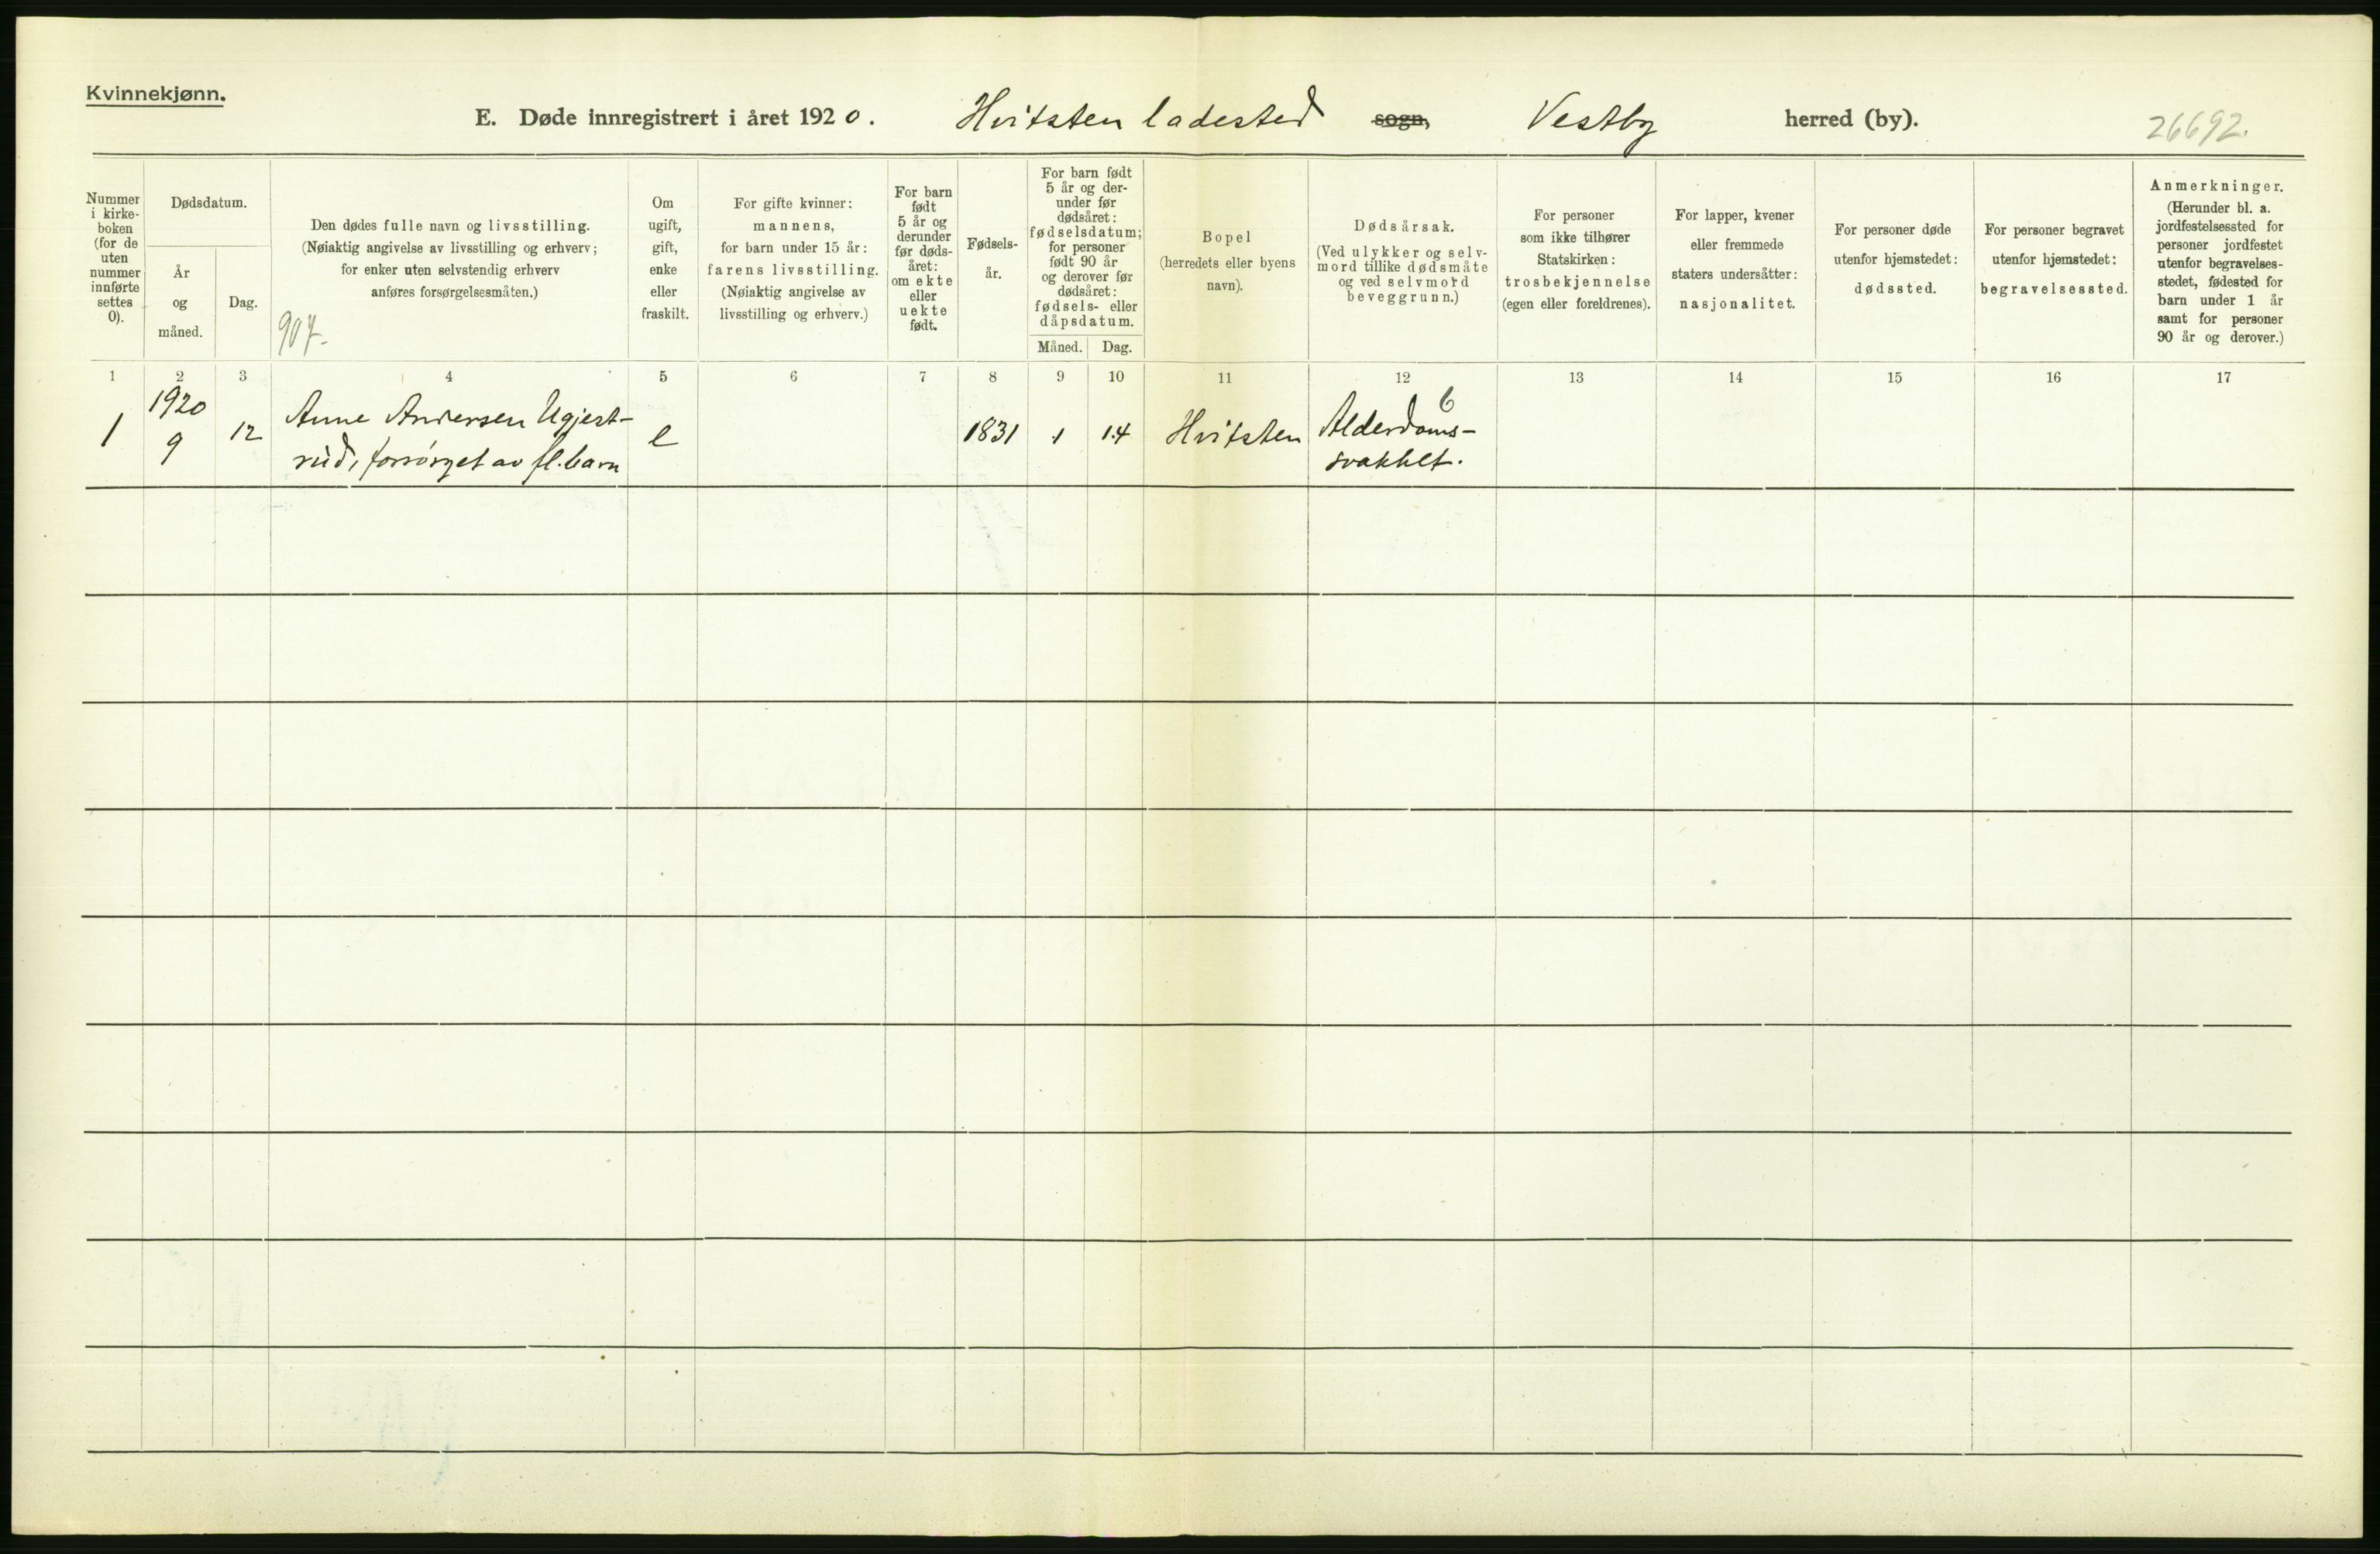 Kvinnekjønn.
E. Døde innregistrert i året 1920. Hvitsten ladested sogn, Vestby herred (by). 26692.
Nummer
i kirke-
boken
(for de
uten
nummer
innførte
settes
0).
Dødsdatum.
År
og
måned.
Dag.
Den dødes fulle navn og livsstilling.
(Nøiaktig angivelse av livsstilling og erhverv;
for enker uten selvstendig erhverv
anføres forsørgelsesmåten.)
907.
Om
ugift,
gift,
enke
eller
fraskilt.
For gifte kvinner:
mannens,
for barn under 15 år:
farens livsstilling.
(Nøiaktig angivelse av
livsstilling og erhverv.)
For barn
født
5 år og
derunder
før døds-
året:
om ekte
eller
uekte
født.
Fødsels-
år.
For barn født
5 år og der-
under før
dødsåret:
fødselsdatum;
for personer
født 90 år
og derover før
dødsåret:
fødsels- eller
dåpsdatum.
Måned. Dag.
Bopel
(herredets eller byens
navn).
Dødsårsak.
(Ved ulykker og selv-
mord tillike dødsmåte
og ved selvmord
beveggrunn.)
For personer
som ikke tilhører
Statskirken:
trosbekjennelse
(egen eller foreldrenes).
For lapper, kvener
eller fremmede
staters undersåtter:
nasjonalitet.
For personer døde
utenfor hjemstedet:
dødssted.
For personer begravet
utenfor hjemstedet:
begravelsessted.
Anmerkninger.
(Herunder bl. a.
jordfestelsessted for
personer jordfestet
utenfor begravelses-
stedet, fødested for
barn under 1 år
samt for personer
90 år og derover.)
1 2 3 4 5 6 7 8 9 10 11 12 13 14 15 16 17
1920 6
1 9 12 Anne Andersen Ugjest- e 1831 1 14 Hvitsten Alderdoms-
rud, forsørget av fl. barn svakhet.